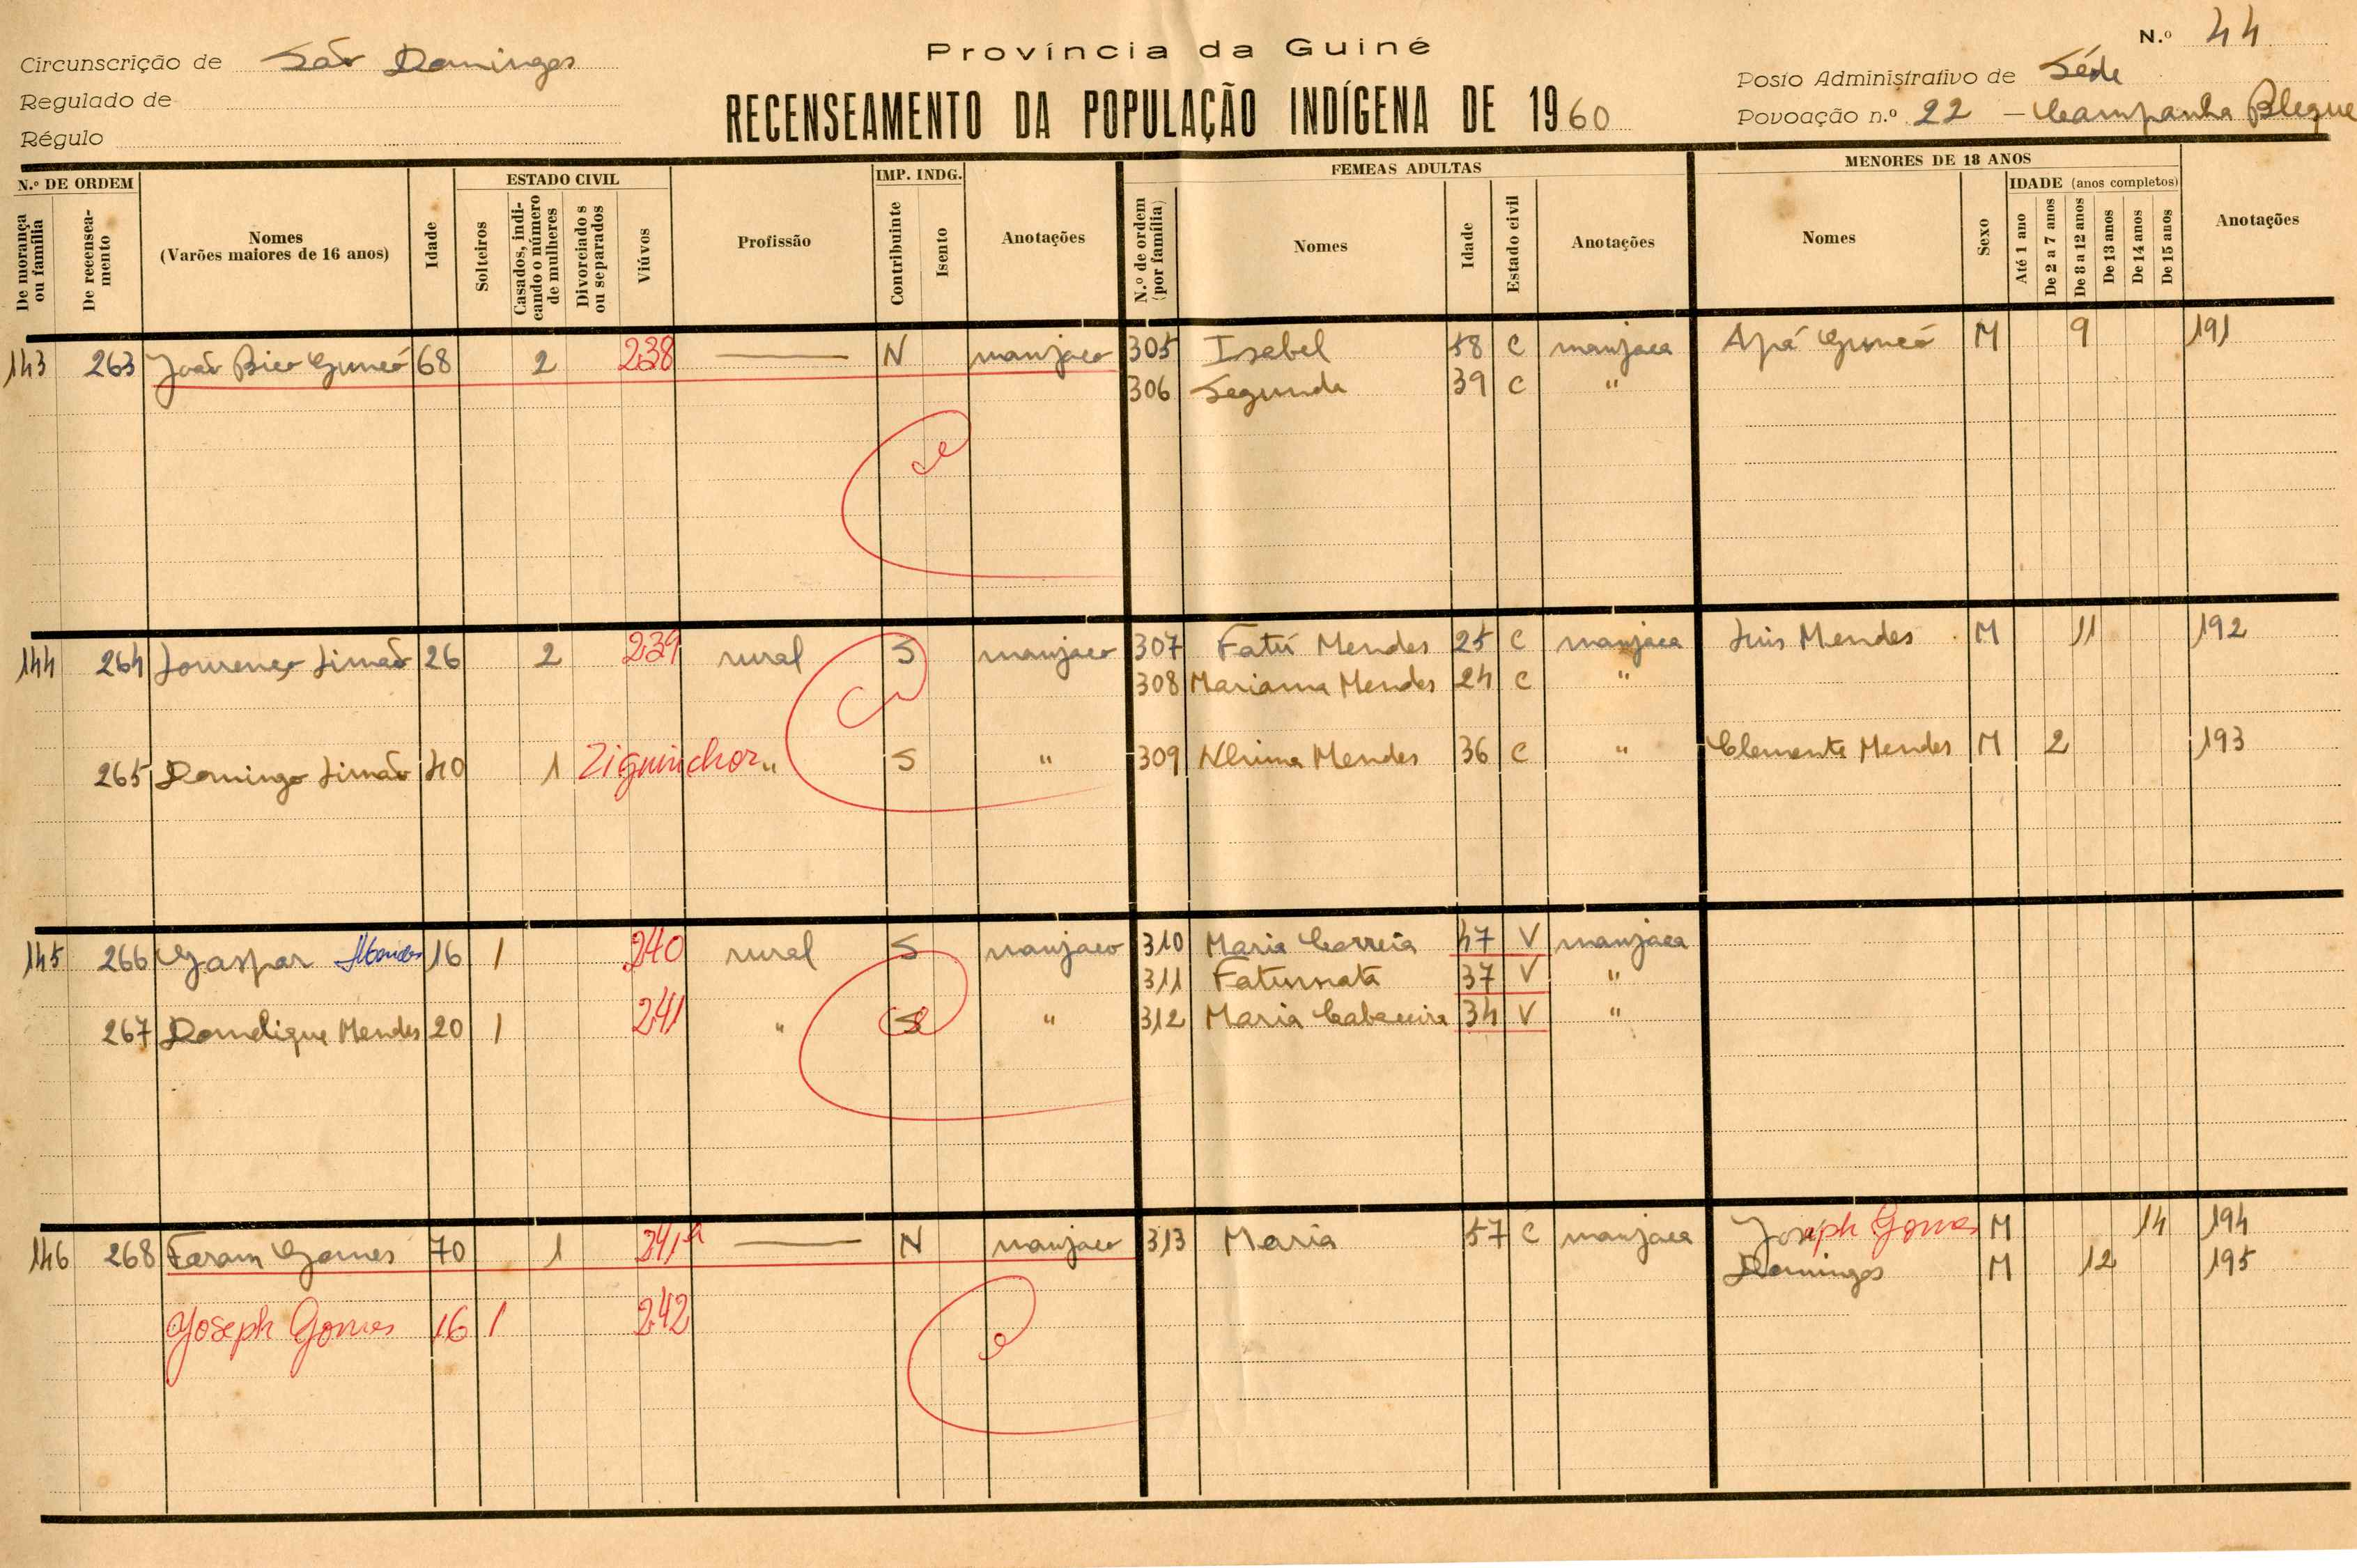 Província da Guiné
N.º 44
Circunscrição de São Domingos
Posto Administrativo de Séde
Regulado de
RECENSEAMENTO DA POPULAÇÃO INDÍGENA DE 1960
Povoação n.º 22 — Campanha Blegue
Régulo
N.º DE ORDEM
De morança ou família
De recenseamento
Nomes
(Varões maiores de 16 anos)
Idade
ESTADO CIVIL
Solteiros
Casados, indicando o número de mulheres
Divorciados ou separados
Viúvos
Profissão
IMP. INDG.
Contribuinte
Isento
Anotações
FEMEAS ADULTAS
N.º de ordem (por família)
Nomes
Idade
Estado civil
Anotações
MENORES DE 18 ANOS
Nomes
Sexo
IDADE (anos completos)
Até 1 ano
De 2 a 7 anos
De 8 a 12 anos
De 13 anos
De 14 anos
De 15 anos
Anotações
143 263 João Bico Guncó 68 2 238 — N manjaco 305 Isabel 58 C manjaca Apá Guncó M 9 191
306 Segunda 39 C "
144 264 Lourenço Simão 26 2 239 rural S manjaco 307 Fatú Mendes 25 C manjaca Luis Mendes M 11 192
308 Mariama Mendes 24 C "
265 Domingo Simão 40 1 Ziguinchor " S " 309 Mendes 36 C " Clemente Mendes M 2 193
145 266 Gaspar Mendes 16 1 240 rural S manjaco 310 Maria Correia 47 V manjaca
311 Fatumata 37 V "
267 Domelique Mendes 20 1 241 " S " 312 Maria Cabaceira 34 V "
146 268 Faram Gomes 70 1 241A — N manjaco 313 Maria 57 C manjaca Joseph Gomes M 14 194
Domingos M 12 195
Joseph Gomes 16 1 242